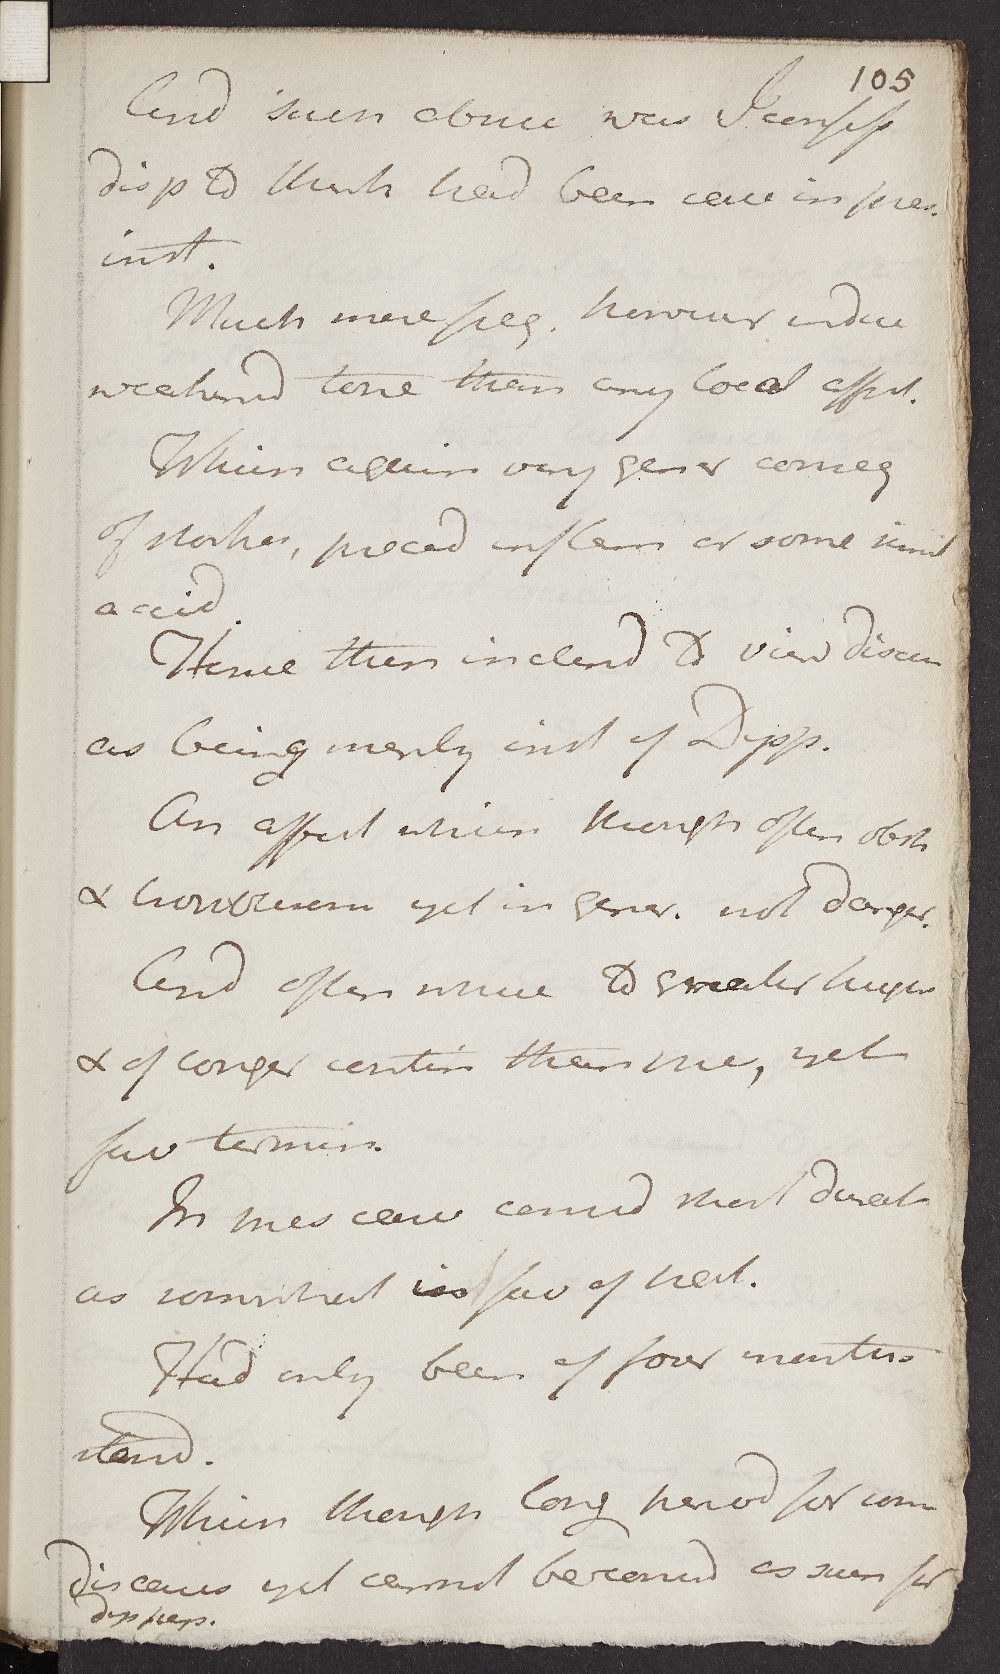 105
And such alone was I confess
disp to think had been case in pres.
inst.
Much more freq. however induc
weakend tone than any local affect.
Which again very gener conseq
of stomach, preced inflam or some
acid.
Hence then inclend to view diseas
as being merely inst of Dysp.
An affect which though often obst
& troublesom yet in gener. not danger.
And often where to greater height
& of longer contin than here, yet
fav termin.
In this case consid short durat
as somewhat in fav of pat.
Had only been of four months
stand.
Which though long period for com
diseases yet cannot be consid as such for
dyspeps.